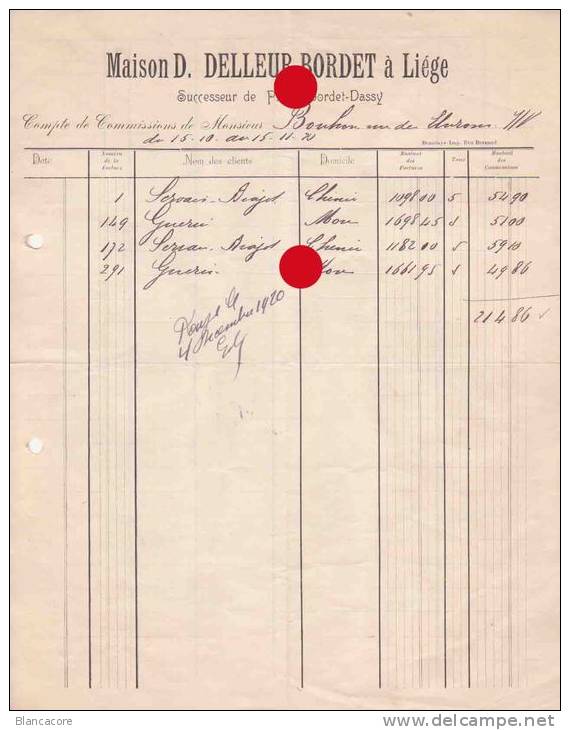 Maison D. DELLEUR BORDET à Liége
Successeur de Bordet-Dassy
Compte de Commissions de Monsieur Bouhon rue de
du 15-10 au 15-11-20
Date Numéro de la Facture Nom des clients Domicile Montant des Factures Taux Montant des Commissions
1 Servais-Biajot Chenée 1098 00 5 54 90
149 Guerin Mon 1698 45 5 51 00
172 Servais-Biajot Chenée 1182 00 5 59 10
291 Guerin 1661 95 49 86
214 86
4 Décembre 1920
Blancacore
delcampe.net